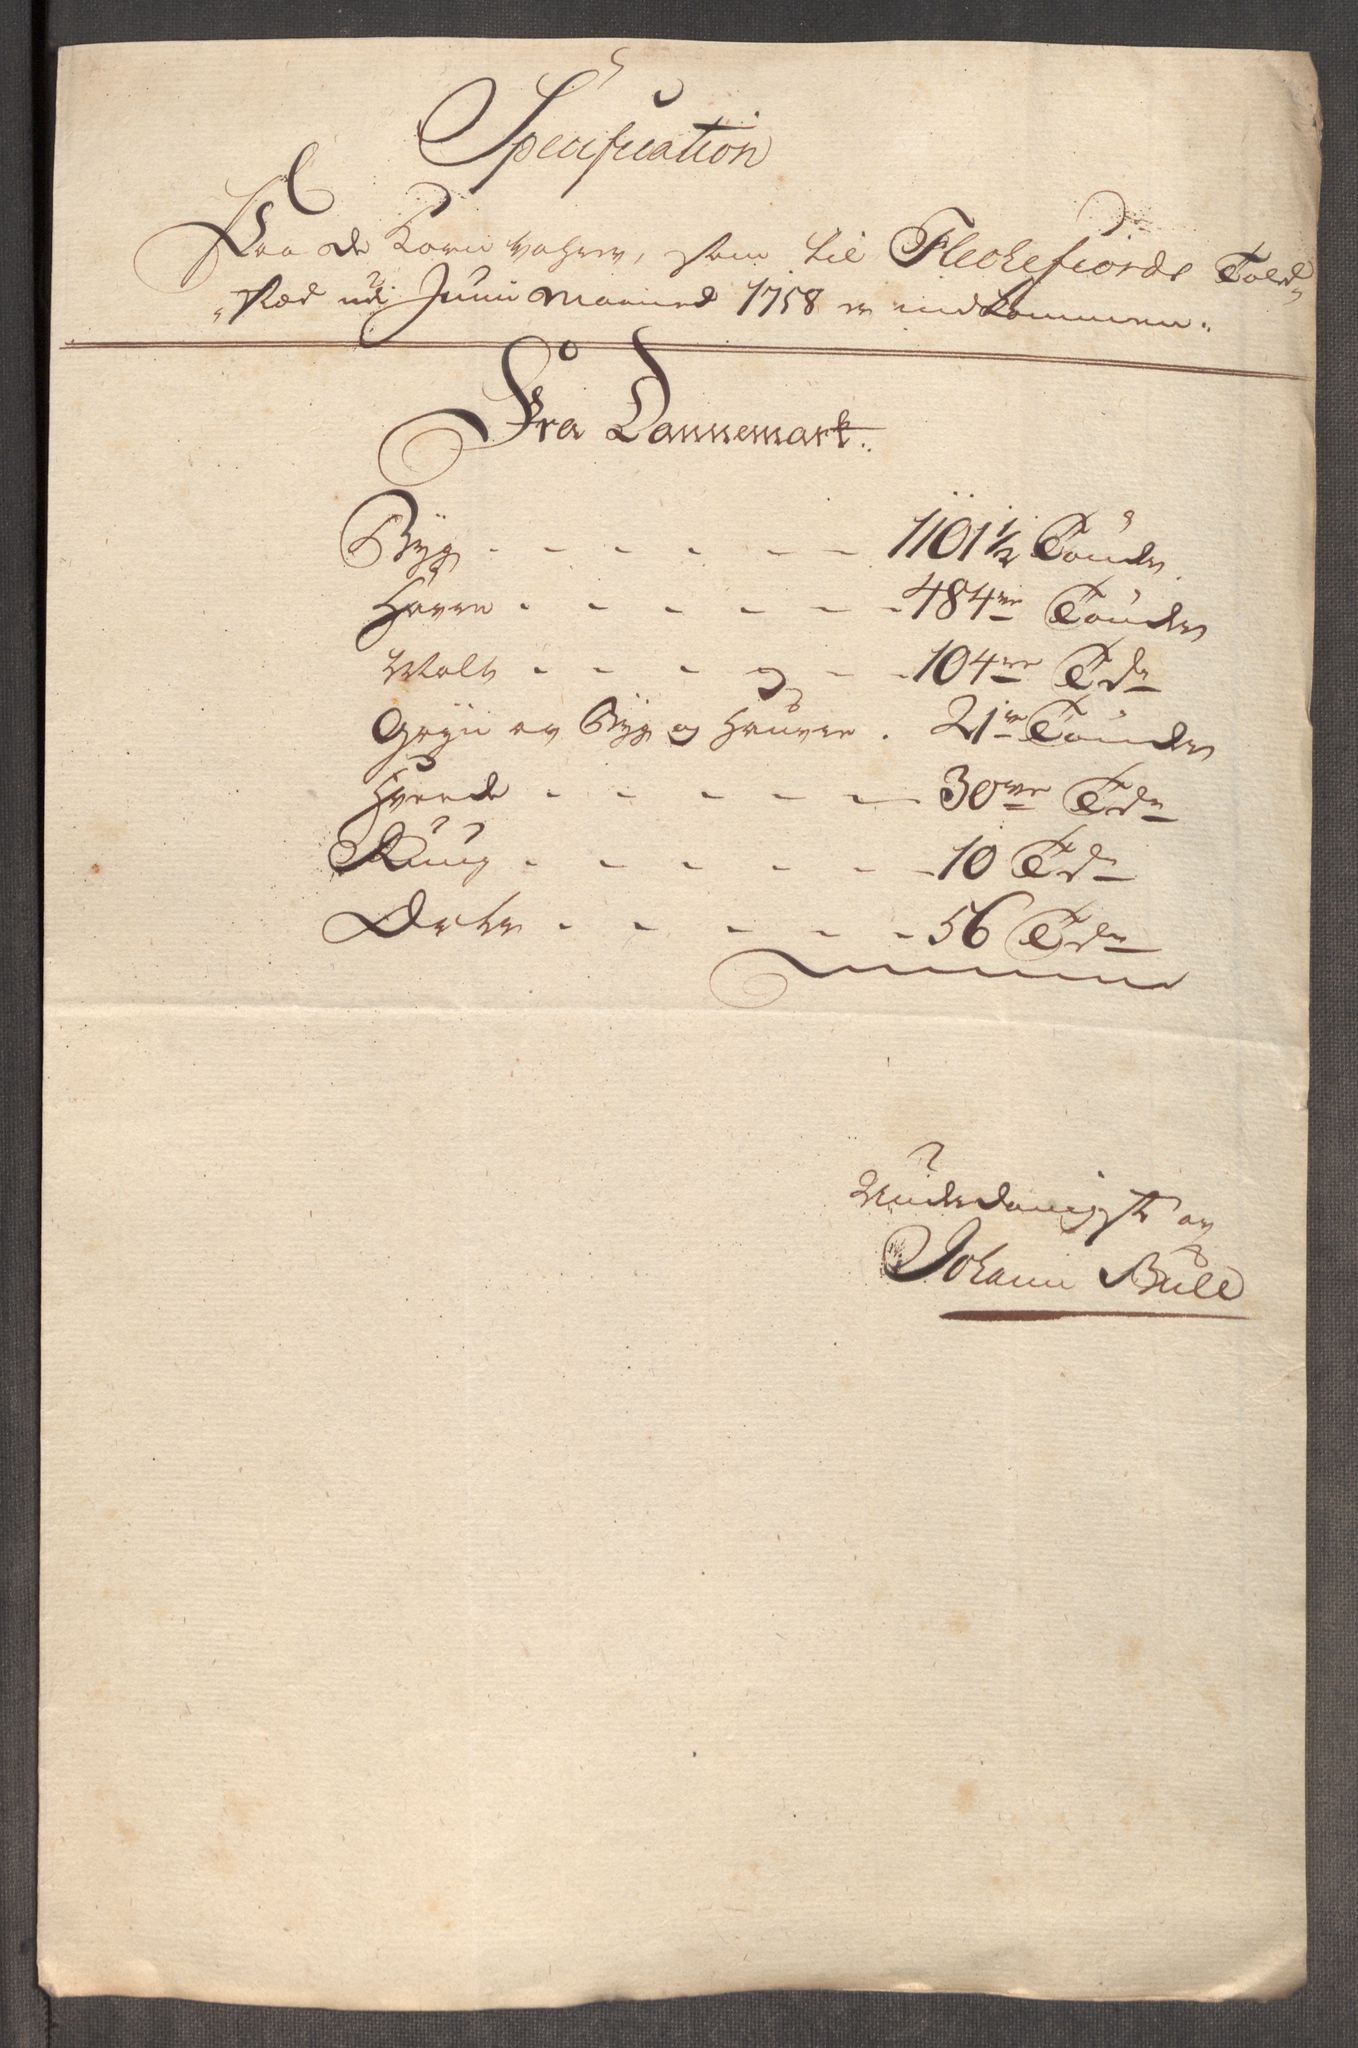 Specification
Paa de Korn vahrer, som til Fleckefiords Told„
„stæd udi Junii Maaned 1758 er indkommen.
Fra Dannemark.
Byg - - - - - - 1101 1/2 Tønder.
Havre - - - - - - 484re Tønder
Malt - - - - - - 104re Tdr
Gryn av Byg og Hauvre . 21re Tønder
Hvede - - - - - 30ve Tdr
Rug - - - - - - 10 Tdr
Erter - - - - - 56 Tdr
Underdanigst av
Johann Bull